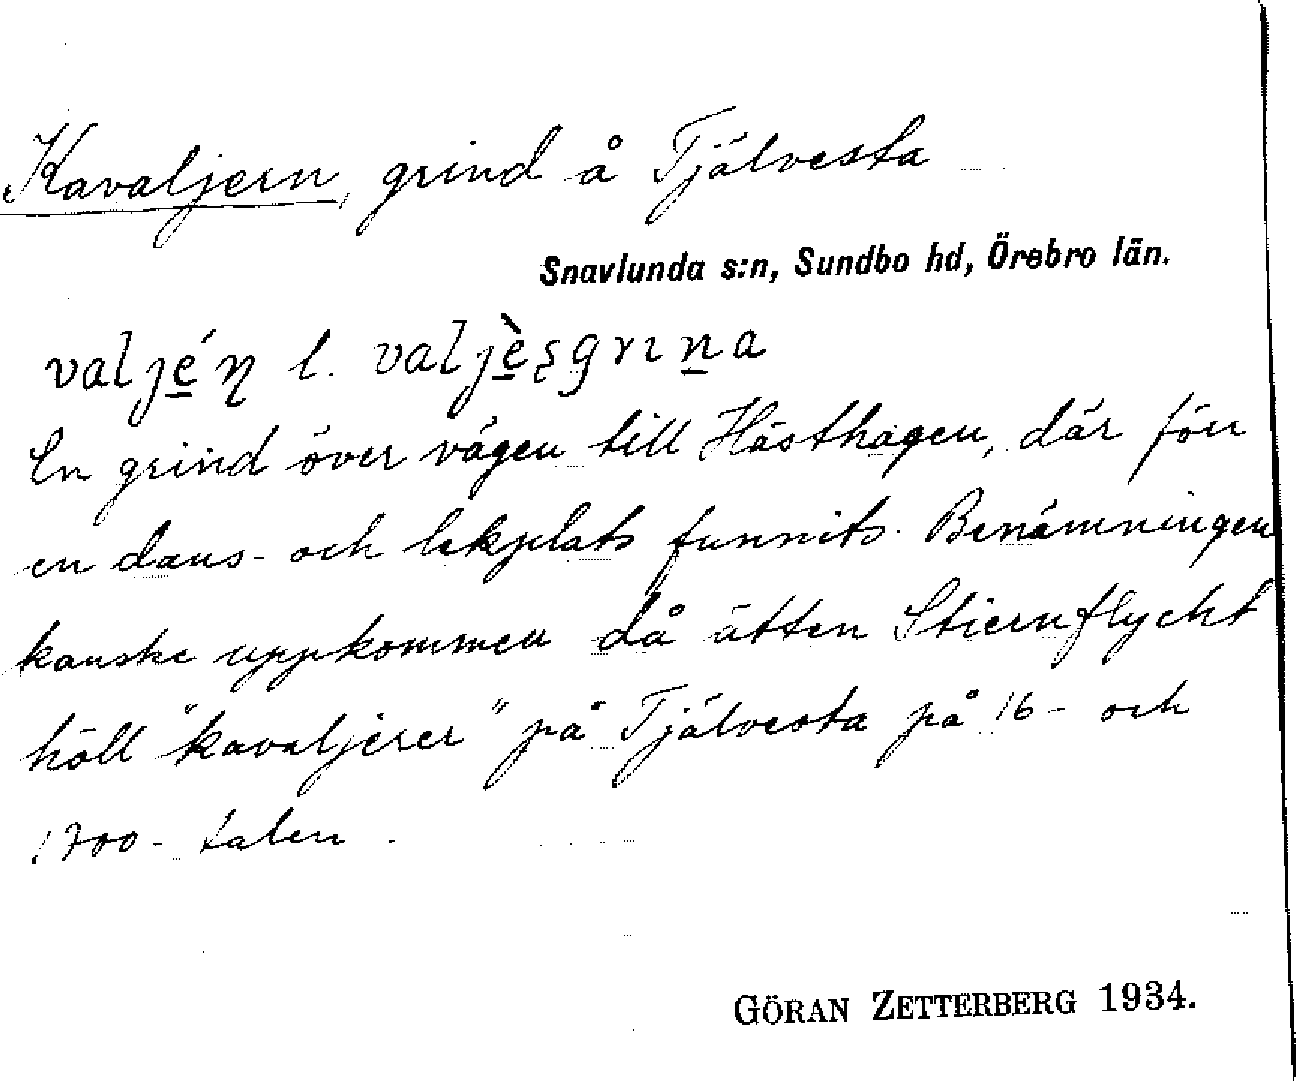 Kavaljern, grind å Tjälvesta
Snavlunda s:n, Sundbo hd, Örebro län.
valjé̱ŋ l. valjè̱ʂgrɩṉa
En grind över vägen till Hästhagen, där förr
en dans- och lekplats funnits. Benämningen
kanske uppkommen då ätten Stiernflycht
höll "kavaljerer" på Tjälvesta på 16- och
1700-talen.
GÖRAN ZETTERBERG 1934.